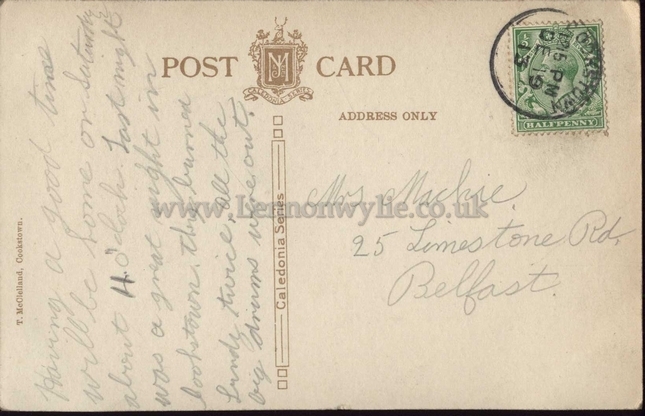 POST CARD
CALEDONIA SERIES
ADDRESS ONLY
COOKSTOWN
5 PM
DE 19
13
HALFPENNY
Having a good time
will be home on Saturday
about 11 o'cloh. Last night
was a great night in
Cookstown, they burned
Lundy twice, all the
big drums were out.
Caledonia Series
T. McClelland, Cookstown.
Mrs Mackie.
25 Limestone Rd,
Belfast.
www.Lennonwylie.co.uk